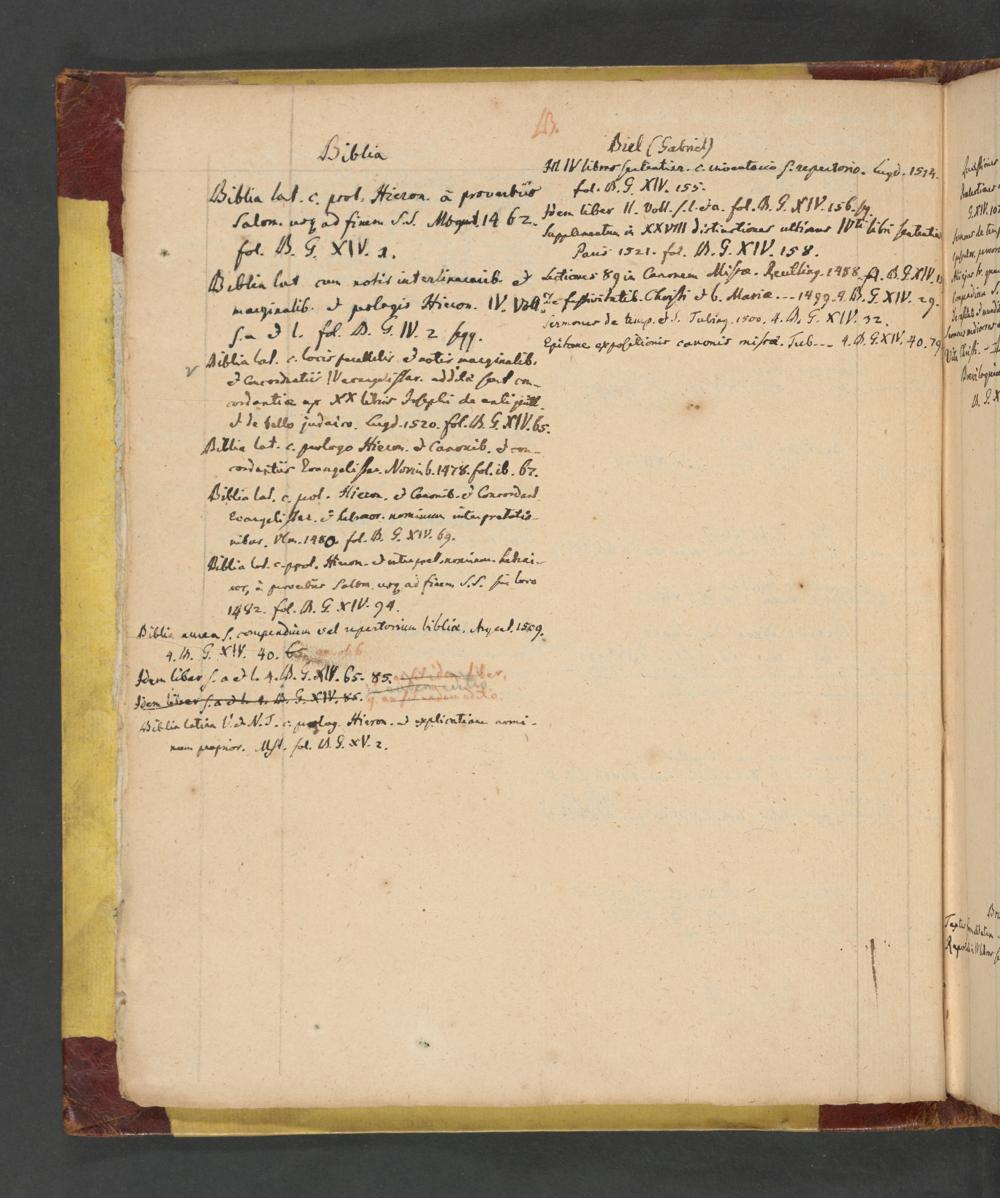 B.
Biblia
Biblia lat. c. prol. Hieron. à proverbiis
Salom. usq ad finem S.S. Mogunt. 1462.
fol. B. G. XIV. 1.
Biblia lat cum notis interlinearib. et
marginalib. et prologis Hieron. IV. Voll.
s. a et l. fol. B. G. IV. 2 sqq.
Biblia lat. c. locis parallelis et notis marginalib.
et Concordantiis IV evangelistar. additis sunt con-
cordantiæ ex XX libris Josephi de antiquitt.
et de bello judaico. Lugd. 1520. fol. B. G. XIV. 65.
Biblia lat. c. prologo Hieron. et Canonib. et con-
cordantiis Evangelistar. Norimb. 1478. fol. ib. 67.
Biblia lat. c. prol. Hieron. et Canonib. et Concordant
Evangelistar. et hebraor. nominum interpretatio-
nibus. Ulm. 1480. fol. B. G. XIV. 69.
Biblia lat. c. prol. Hieron. et interpret. nominum hebrai-
cor, à proverbiis Salom. usq ad finem S.S. sine loco
1482. fol. B. G. XIV. 94.
Biblia aurea s. compendium vel repertorium bibliæ. Argent. 1509.
4. B. G. XIV. 40.
Idem liber s. a et l. 4. B. G. XIV. 65. 85.
Idem liber s. a et l. 4. B. G. XIV. 85.
Biblia latina V. et N. T. c. prolog. Hieron. et explicatione nomi-
num proprior. Mst. fol. B. G. XV. 2.
Biel (Gabriel)
In IV libros sententiar. c. inventario s. repertorio. Lugd. 1514.
fol. B. G. XIV. 155.
Idem liber II. Voll. s. l. et a. fol. B. G. XIV. 156. sq.
Supplementum in XXVIII distinctiones ultimas IVti libri sententiar
Paris 1521. fol. B. G. XIV. 158.
Lectiones 89 in Canonem Missæ. Reutling. 1488. fl. B. G. XIV.
De festivitatib. Christi et b. Mariæ --- 1499. 4. B. G. XIV. 29.
Sermones de temp. et S. Tubing. 1500. 4. B. G. XIV. 32.
Epitome expositionis canonis missæ. Tub --- 4. B. G. XIV. 40. 79